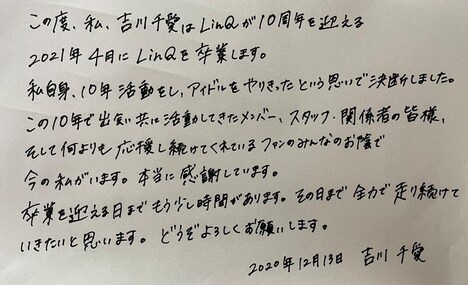 この度、私、吉川千愛はLinQが10周年を迎える
2021年4月にLinQを卒業します。
私自身、10年活動をし、アイドルをやりきったという思いで決断しました。
この10年で出会い共に活動してきたメンバー、スタッフ・関係者の皆様、
そして何よりも応援し続けてくれているファンのみんなのお陰で
今の私がいます。本当に感謝しています。
卒業を迎える日までもう少し時間があります。その日まで全力で走り続けて
いきたいと思います。どうぞよろしくお願いします。
2020年12月13日 吉川 千愛